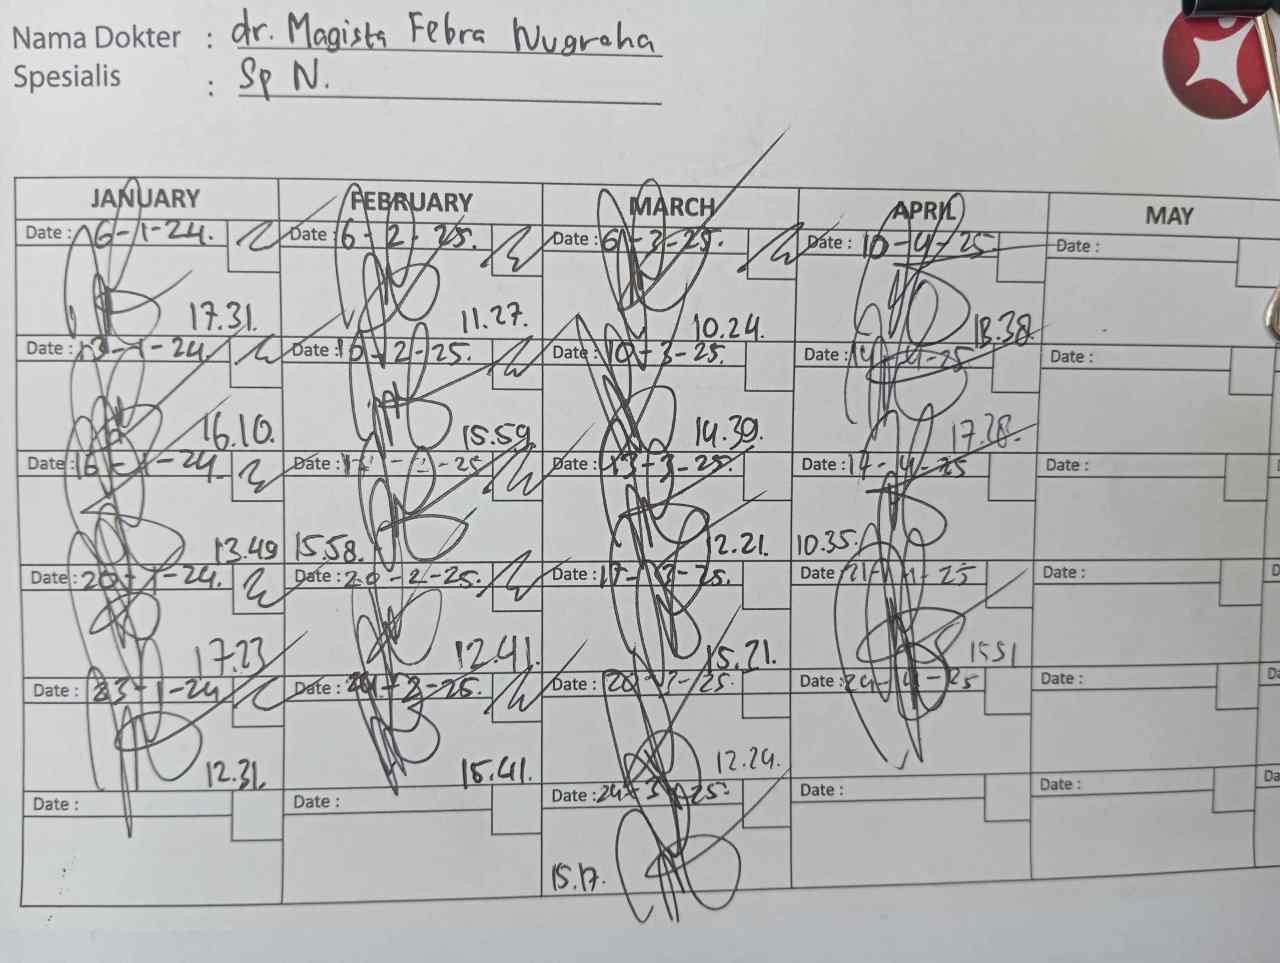 Nama Dokter : dr. Magista Febra Nugraha
Spesialis : Sp N.
JANUARY FEBRUARY MARCH APRIL MAY
Date : 6-1-24. Date : 6-2-25. Date : 6-3-25. Date : 10-4-25 Date :
17.31. 11.27. 10.24. 13.38.
Date : 13-1-24. Date : 10-2-25. Date : 10-3-25. Date : 14-4-25 Date :
16.10. 15.59. 14.39. 17.28.
Date : 16-1-24. Date : -2-25 Date : 13-3-25. Date : 17-4-25 Date :
13.49 15.58. 12.21. 10.35.
Date : 20-1-24. Date : 20-2-25. Date : 17-3-25. Date : 21-4-25 Date :
17.23 12.41. 15.21. 1551
Date : 23-1-24 Date : 24-2-25. Date : 20-3-25. Date : 24-4-25 Date :
12.31. 15.41. 12.24.
Date : Date : Date : 24-3-25. Date : Date :
15.17.